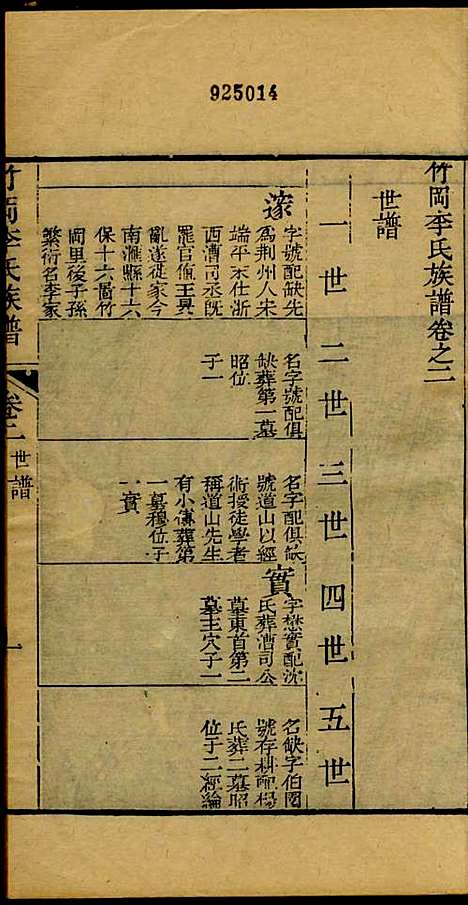 925014
竹岡李氏族譜卷之二
世譜
一世
二世
三世
四世
五世
字號配缺先
為荆州人宋
端平末仕浙
西漕司丞旣
罷官值王興
亂遂徙家今
南滙縣十六
保十六啚竹
岡里後子孫
繁衍名李家
名字號配俱
缺葬第一墓
昭位
子一
名字配俱缺
號道山以經
術授徒學者
稱道山先生
有小傳葬第
一墓穆位子
一實
實
字懋實配沈
氏葬漕司公
墓東首第二
墓主穴子一
名缺字伯圖
號存耕配楊
氏葬二墓昭
位子二經綸
竹岡李氏族譜
卷二
世譜
一